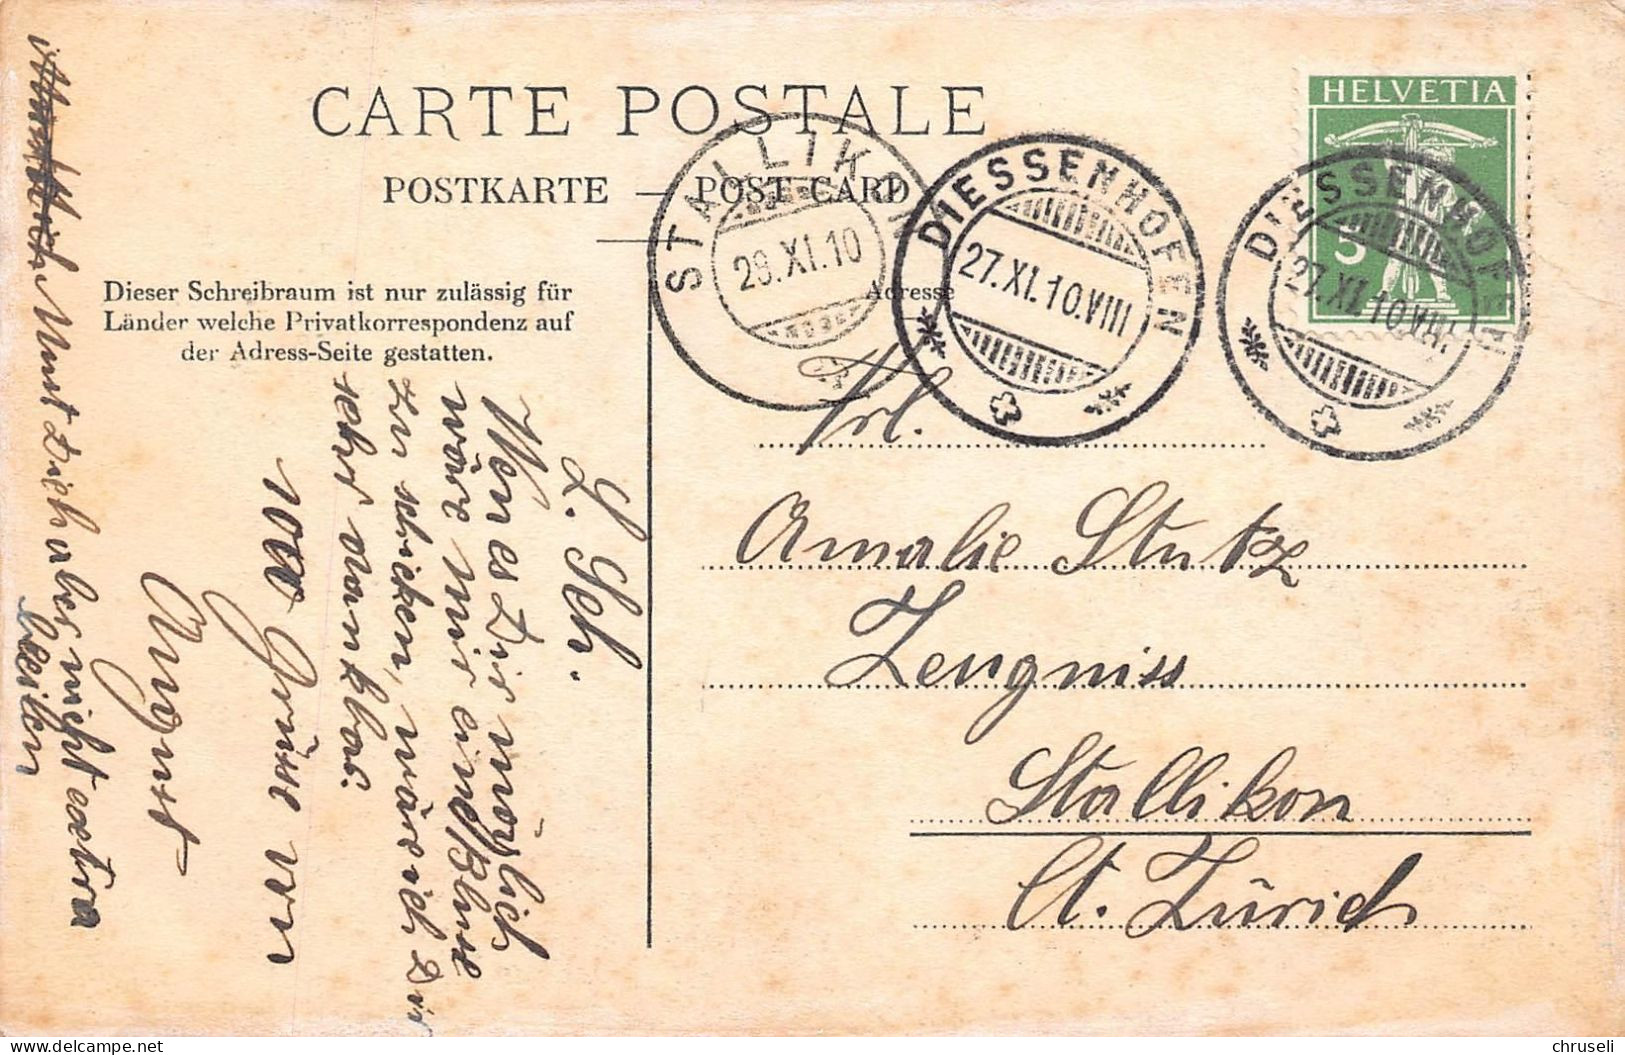 CARTE POSTALE
POSTKARTE — POST CARD
Dieser Schreibraum ist nur zulässig für
Länder welche Privatkorrespondenz auf
der Adress-Seite gestatten.
Adresse
HELVETIA
5
STALLIKON
28.XI.10
DIESSENHOFEN
27.XI.10.VIII
DIESSENHOFEN
27.XI.10.VIII
Frl.
Amalie Stutz
Zeugniss
Stallikon
Ct. Zürich
L. Sch.
Wen es Dir möglich
wäre mir eine Bluse
zu schicken, wäre ich Dir
sehr dankbar.
1000 Grüsse von
August
Must Dich aber nicht extra
beeilen
chruseli